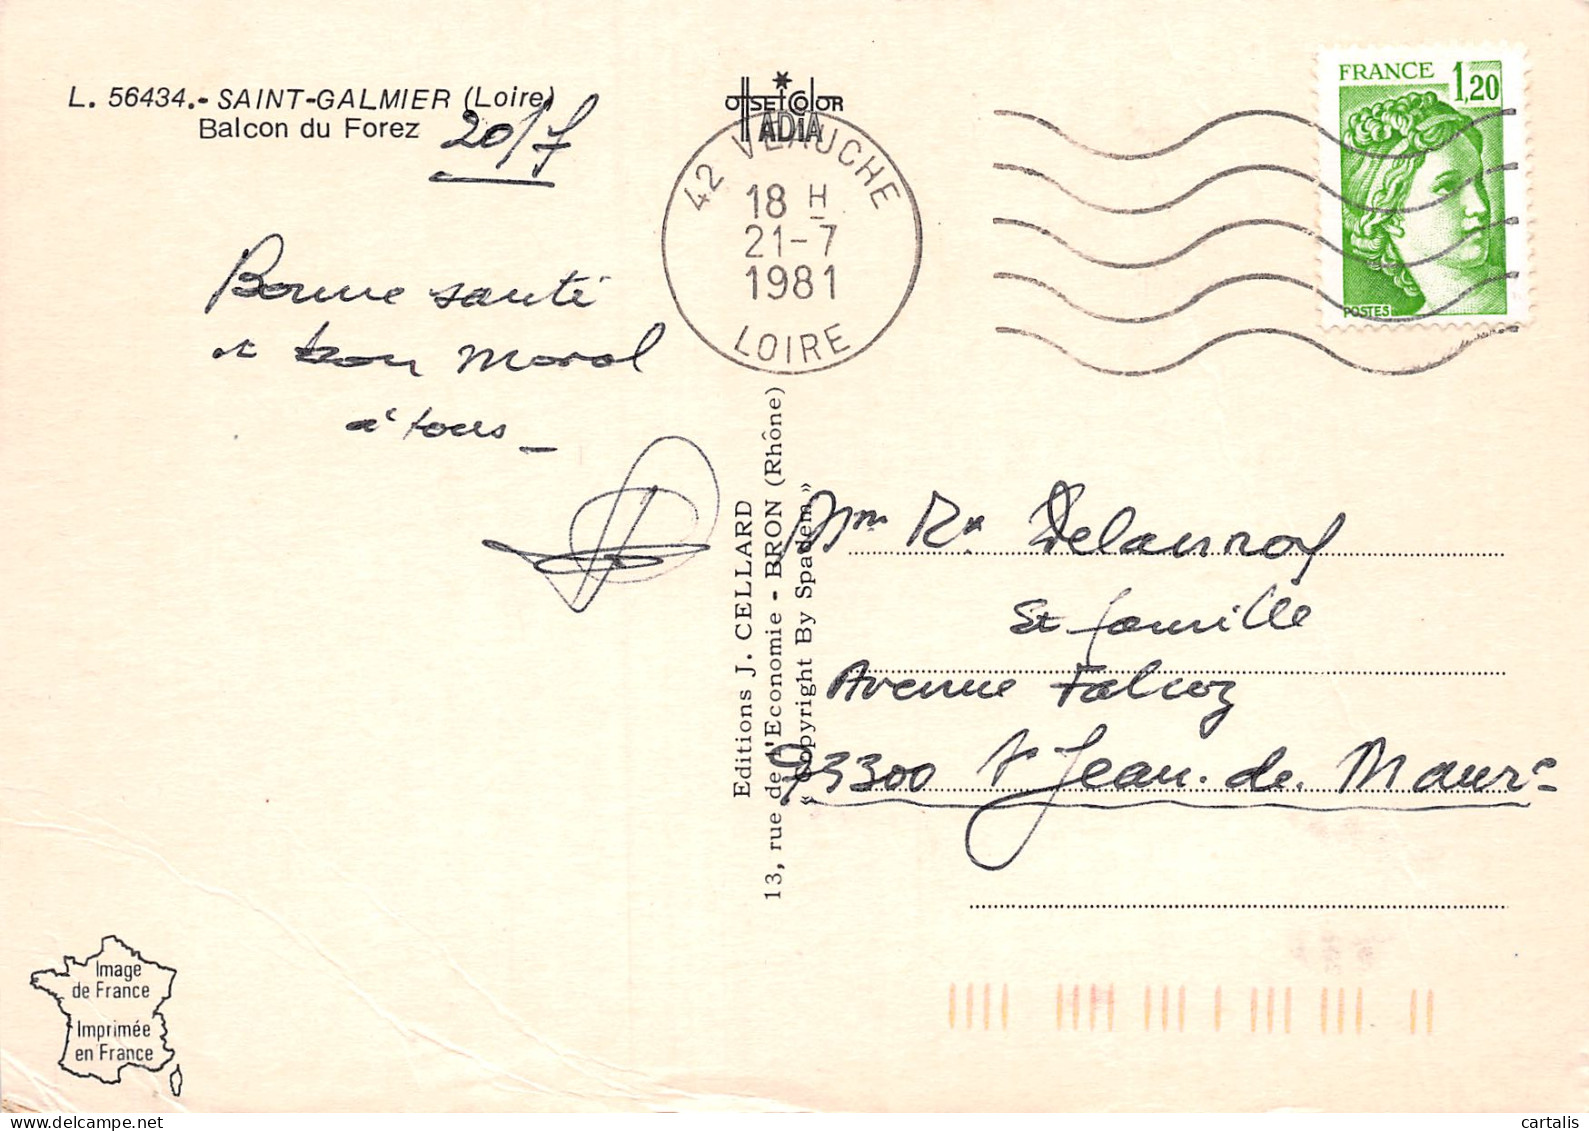 L. 56434.- SAINT-GALMIER (Loire)
Balcon du Forez
20/7
Bonne santé
et bon moral
à tous_
OffSEtCOlOR
ADIA
42 VEAUCHE
18 H
21-7
1981
LOIRE
FRANCE 1,20
POSTES
Editions J. CELLARD
13, rue de l'Economie - BRON (Rhône)
« Copyright By Spadem »
Mm Delannoy
et famille
Avenue Falcoz
73300 St Jean. de. Maur.e
Image
de France
Imprimée
en France
cartalis